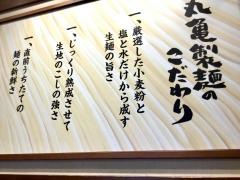 丸亀製麺の
こだわり
一、厳選した小麦粉と
塩と水だけから成す
生麺の旨さ
一、じっくり熟成させて
生地のこしの強さ
一、直前うちたての
麺の新鮮さ